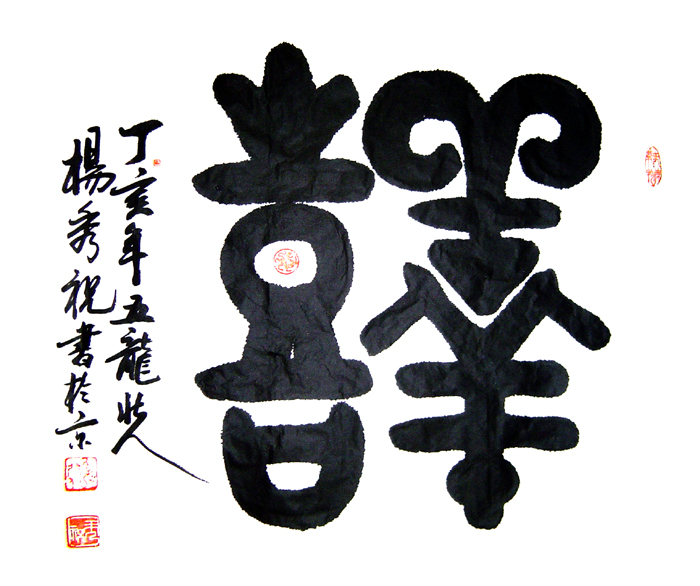 喜
丁亥年五龍人
楊秀祝書於京